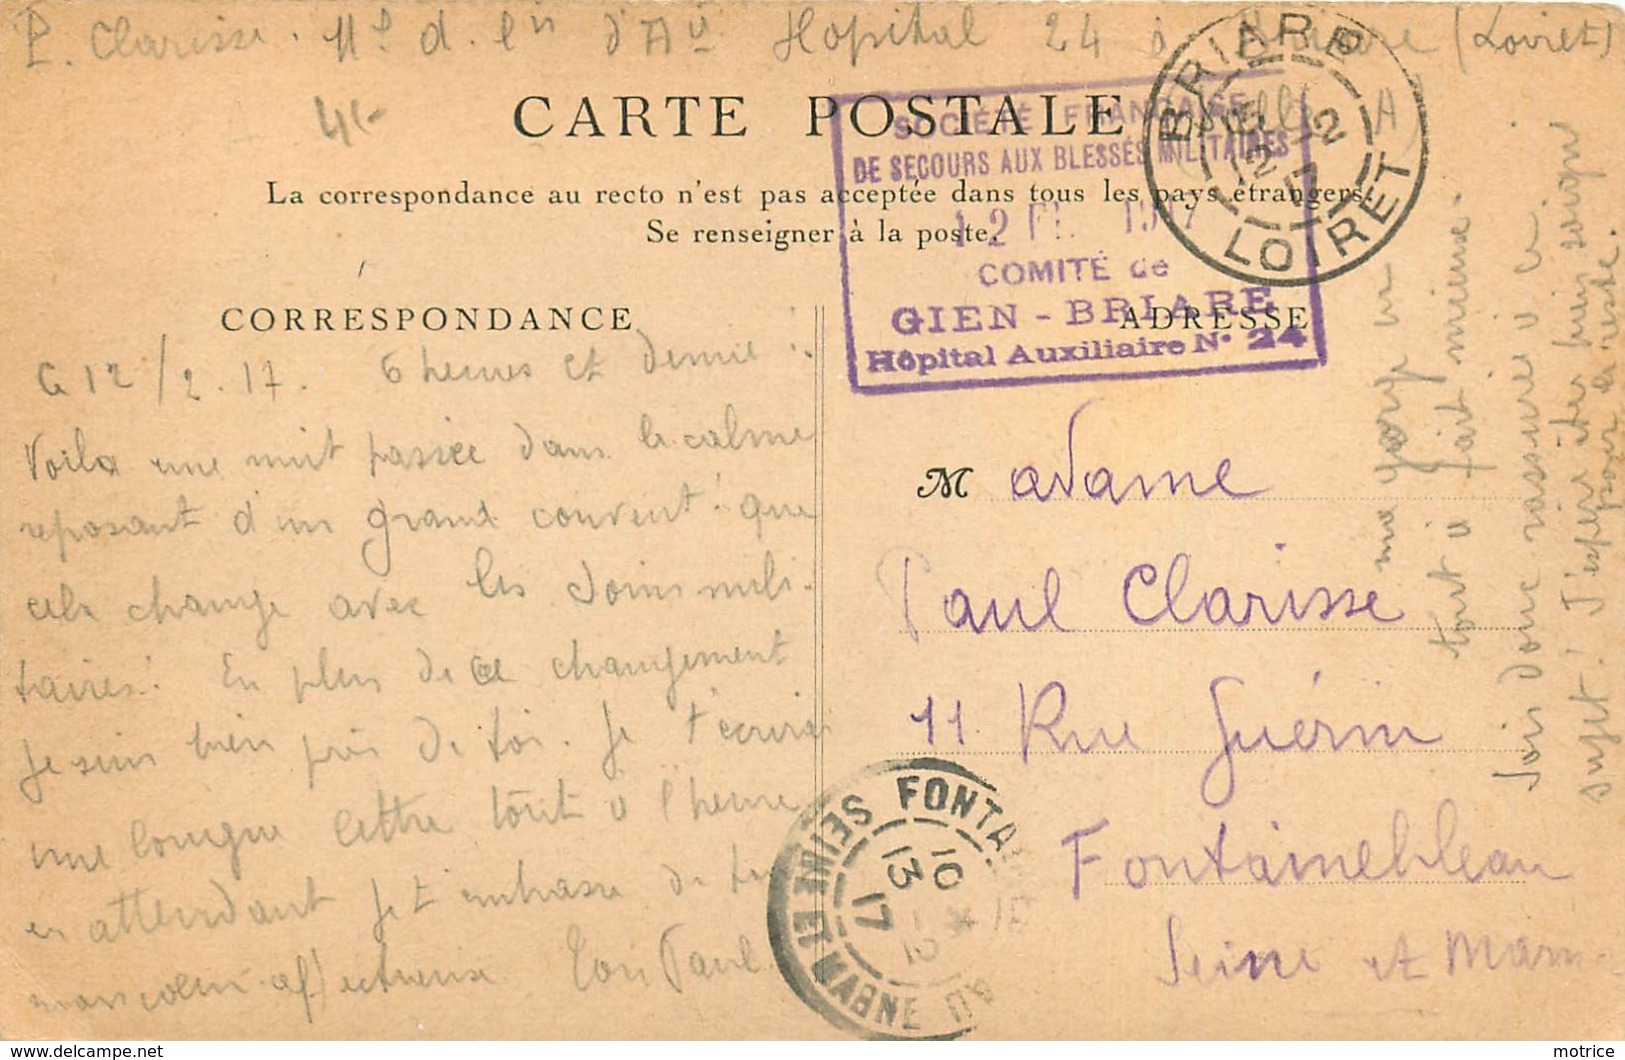 P. Clarisse. Hôpital 24 à Briare (Loiret)
4-
CARTE POSTALE
La correspondance au recto n'est pas acceptée dans tous les pays étrangers.
Se renseigner à la poste.
SOCIÉTÉ FRANÇAISE
DE SECOURS AUX BLESSÉS MILITAIRES
12 FE 1917
COMITÉ de
GIEN - BRIARE
Hôpital Auxiliaire N° 24
BRIARE
12 - 2
17
LOIRET
CORRESPONDANCE
ADRESSE
Ce 12/2.17. 6 heures et demie.
Voila une nuit passée dans le calme
reposant d'un grand couvent! que
cela change avec les soins mili-
taires! En plus de ce changement
je suis bien près de toi. Je t'écrirai
une longue lettre tout à l'heure
en attendant je t'embrasse de tout
mon coeur affectueux Ton Paul
Madame
Paul Clarisse
11 Rue Guérin
Fontainebleau
Seine et Marne
FONTA
SEINE ET MARNE
10
13 - 2
17
tout à fait mieux.
sois donc rassurée à ce
sujet! J'espère être bien soigné
pour le reste.
motrice